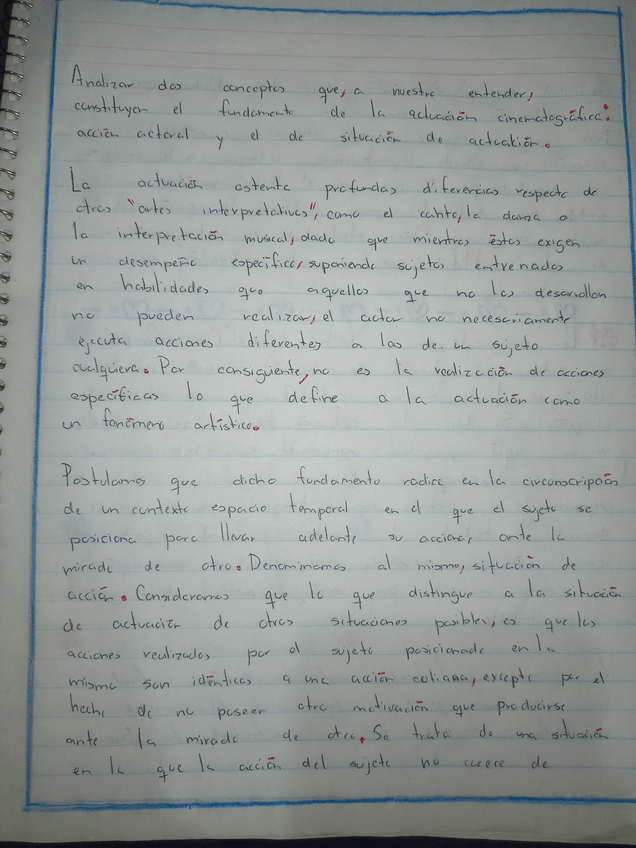 Analizar dos conceptos que, a nuestro entender,
constituyen el fundamento de la actuación cinematográfica:
acción actoral y el de situación de actuación.
La actuación ostenta profundas diferencias respecto de
otras "artes interpretativas", como el canto, la danza o
la interpretación musical, dado que mientras éstas exigen
un desempeño específico, suponiendo sujetos entrenados
en habilidades que aquellos que no las desarrollan
no pueden realizar, el actor no necesariamente
ejecuta acciones diferentes a las de un sujeto
cualquiera. Por consiguiente, no es la realización de acciones
específicas lo que define a la actuación como
un fenómeno artístico.
Postulamos que dicho fundamento radica en la circunscripción
de un contexto espacio temporal en el que el sujeto se
posiciona para llevar adelante su accionar, ante la
mirada de otro. Denominamos al mismo, situación de
acción. Consideramos que lo que distingue a la situación
de actuación de otras situaciones posibles, es que las
acciones realizadas por el sujeto posicionado en la
misma son idénticas a una acción cotiana, excepto por el
hecho de no poseer otra motivación que producirse
ante la mirada de otro. Se trata de una situación
en la que la acción del sujeto no carece de